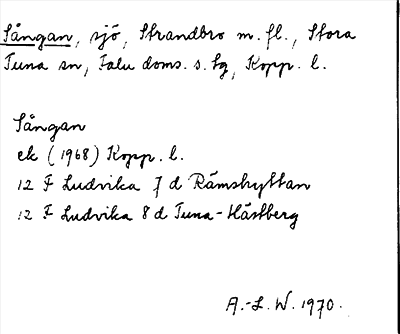 Sången, sjö, Strandbro m. fl., Stora
Tuna sn, Falu doms. s. tg, Kopp. l.
Sången
ek (1968) Kopp. l.
12 F Ludvika 7 d Rämshyttan
12 F Ludvika 8 d Tuna-Hästberg
A.-L. W. 1970.